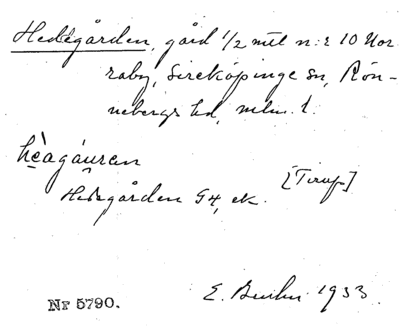 Hedegården, gård 1/2 mil n:r 10 Nor
raby, Sireköpinge sn, Rön-
nebergs hd, mlm. l.
hèagáuren
Hedegården G4, ek. [Tirup]
E. 1933
Nr 5790.